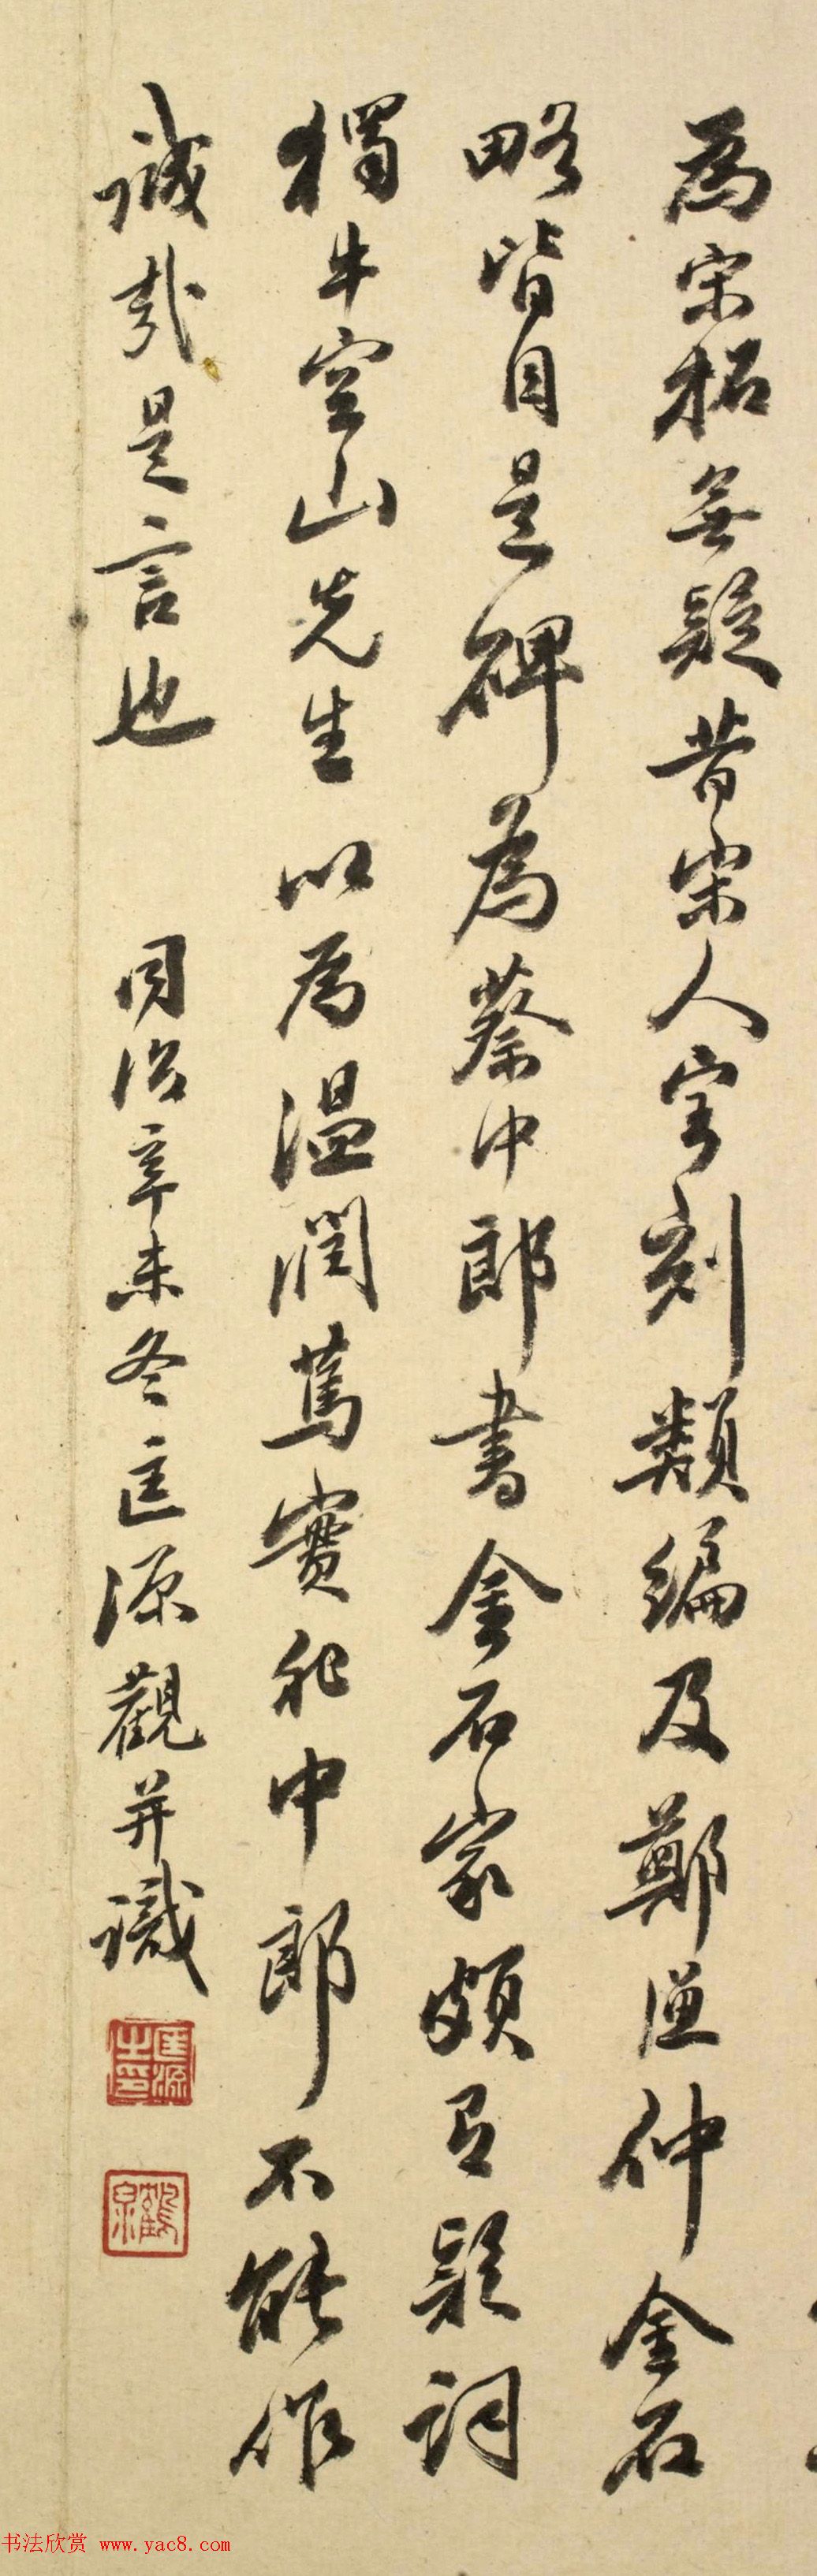 為宋拓無疑昔宋人寶刻類編及鄭漁仲金石
略皆目是碑為蔡中郎書金石家頗有疑詞
獨牛空山先生以為溫潤篤實非中郎不能作
誠哉是言也 同治辛未冬匡源觀并識
匡源之印
鶴泉
书法欣赏 www.yac8.com